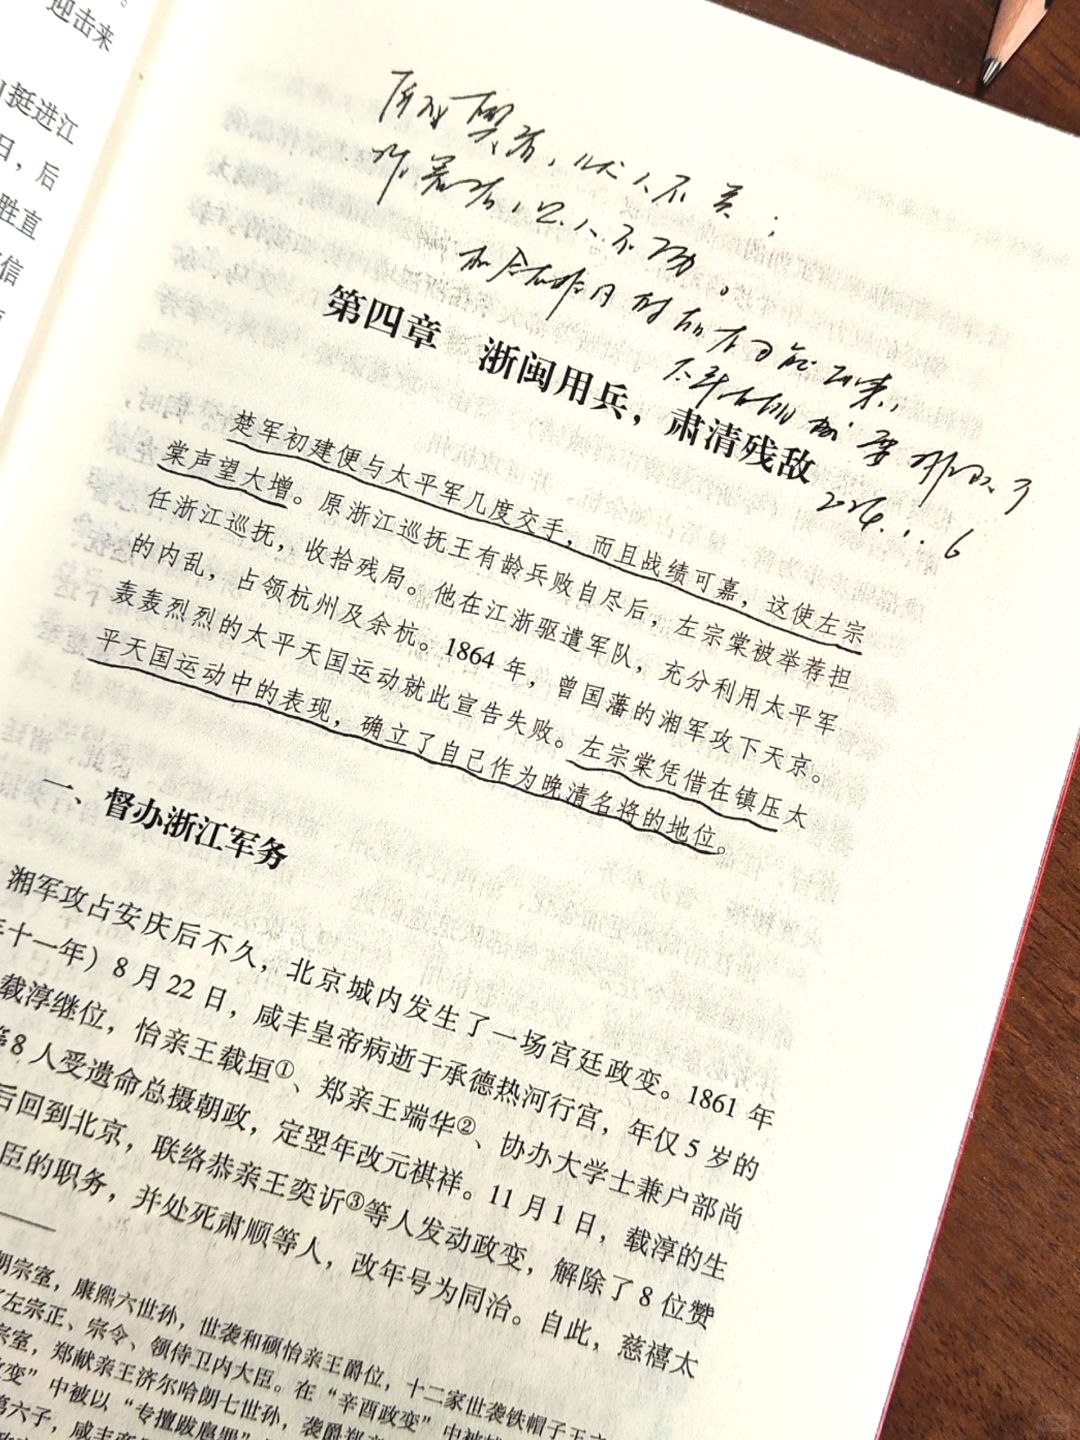 迎击来
挺进江
日，后
胜直
信
2024.1.6
第四章 浙闽用兵，肃清残敌
楚军初建便与太平军几度交手，而且战绩可嘉，这使左宗
棠声望大增。原浙江巡抚王有龄兵败自尽后，左宗棠被举荐担
任浙江巡抚，收拾残局。他在江浙驱遣军队，充分利用太平军
的内乱，占领杭州及余杭。1864年，曾国藩的湘军攻下天京。
轰轰烈烈的太平天国运动就此宣告失败。左宗棠凭借在镇压太
平天国运动中的表现，确立了自己作为晚清名将的地位。
一、督办浙江军务
湘军攻占安庆后不久，北京城内发生了一场宫廷政变。1861年
十一年）8月22日，咸丰皇帝病逝于承德热河行宫，年仅5岁的
载淳继位，怡亲王载垣①、郑亲王端华②、协办大学士兼户部尚
等8人受遗命总摄朝政，定翌年改元祺祥。11月1日，载淳的生
后回到北京，联络恭亲王奕䜣③等人发动政变，解除了8位赞
臣的职务，并处死肃顺等人，改年号为同治。自此，慈禧太
朝宗室，康熙六世孙，世袭和硕怡亲王爵位，十二家世袭铁帽子王
左宗正、宗令、领侍卫内大臣。在“辛酉政变”中被
宗室，郑献亲王济尔哈朗七世孙，袭爵郑
政变”中被以“专擅跋扈罪”
第六子，咸丰